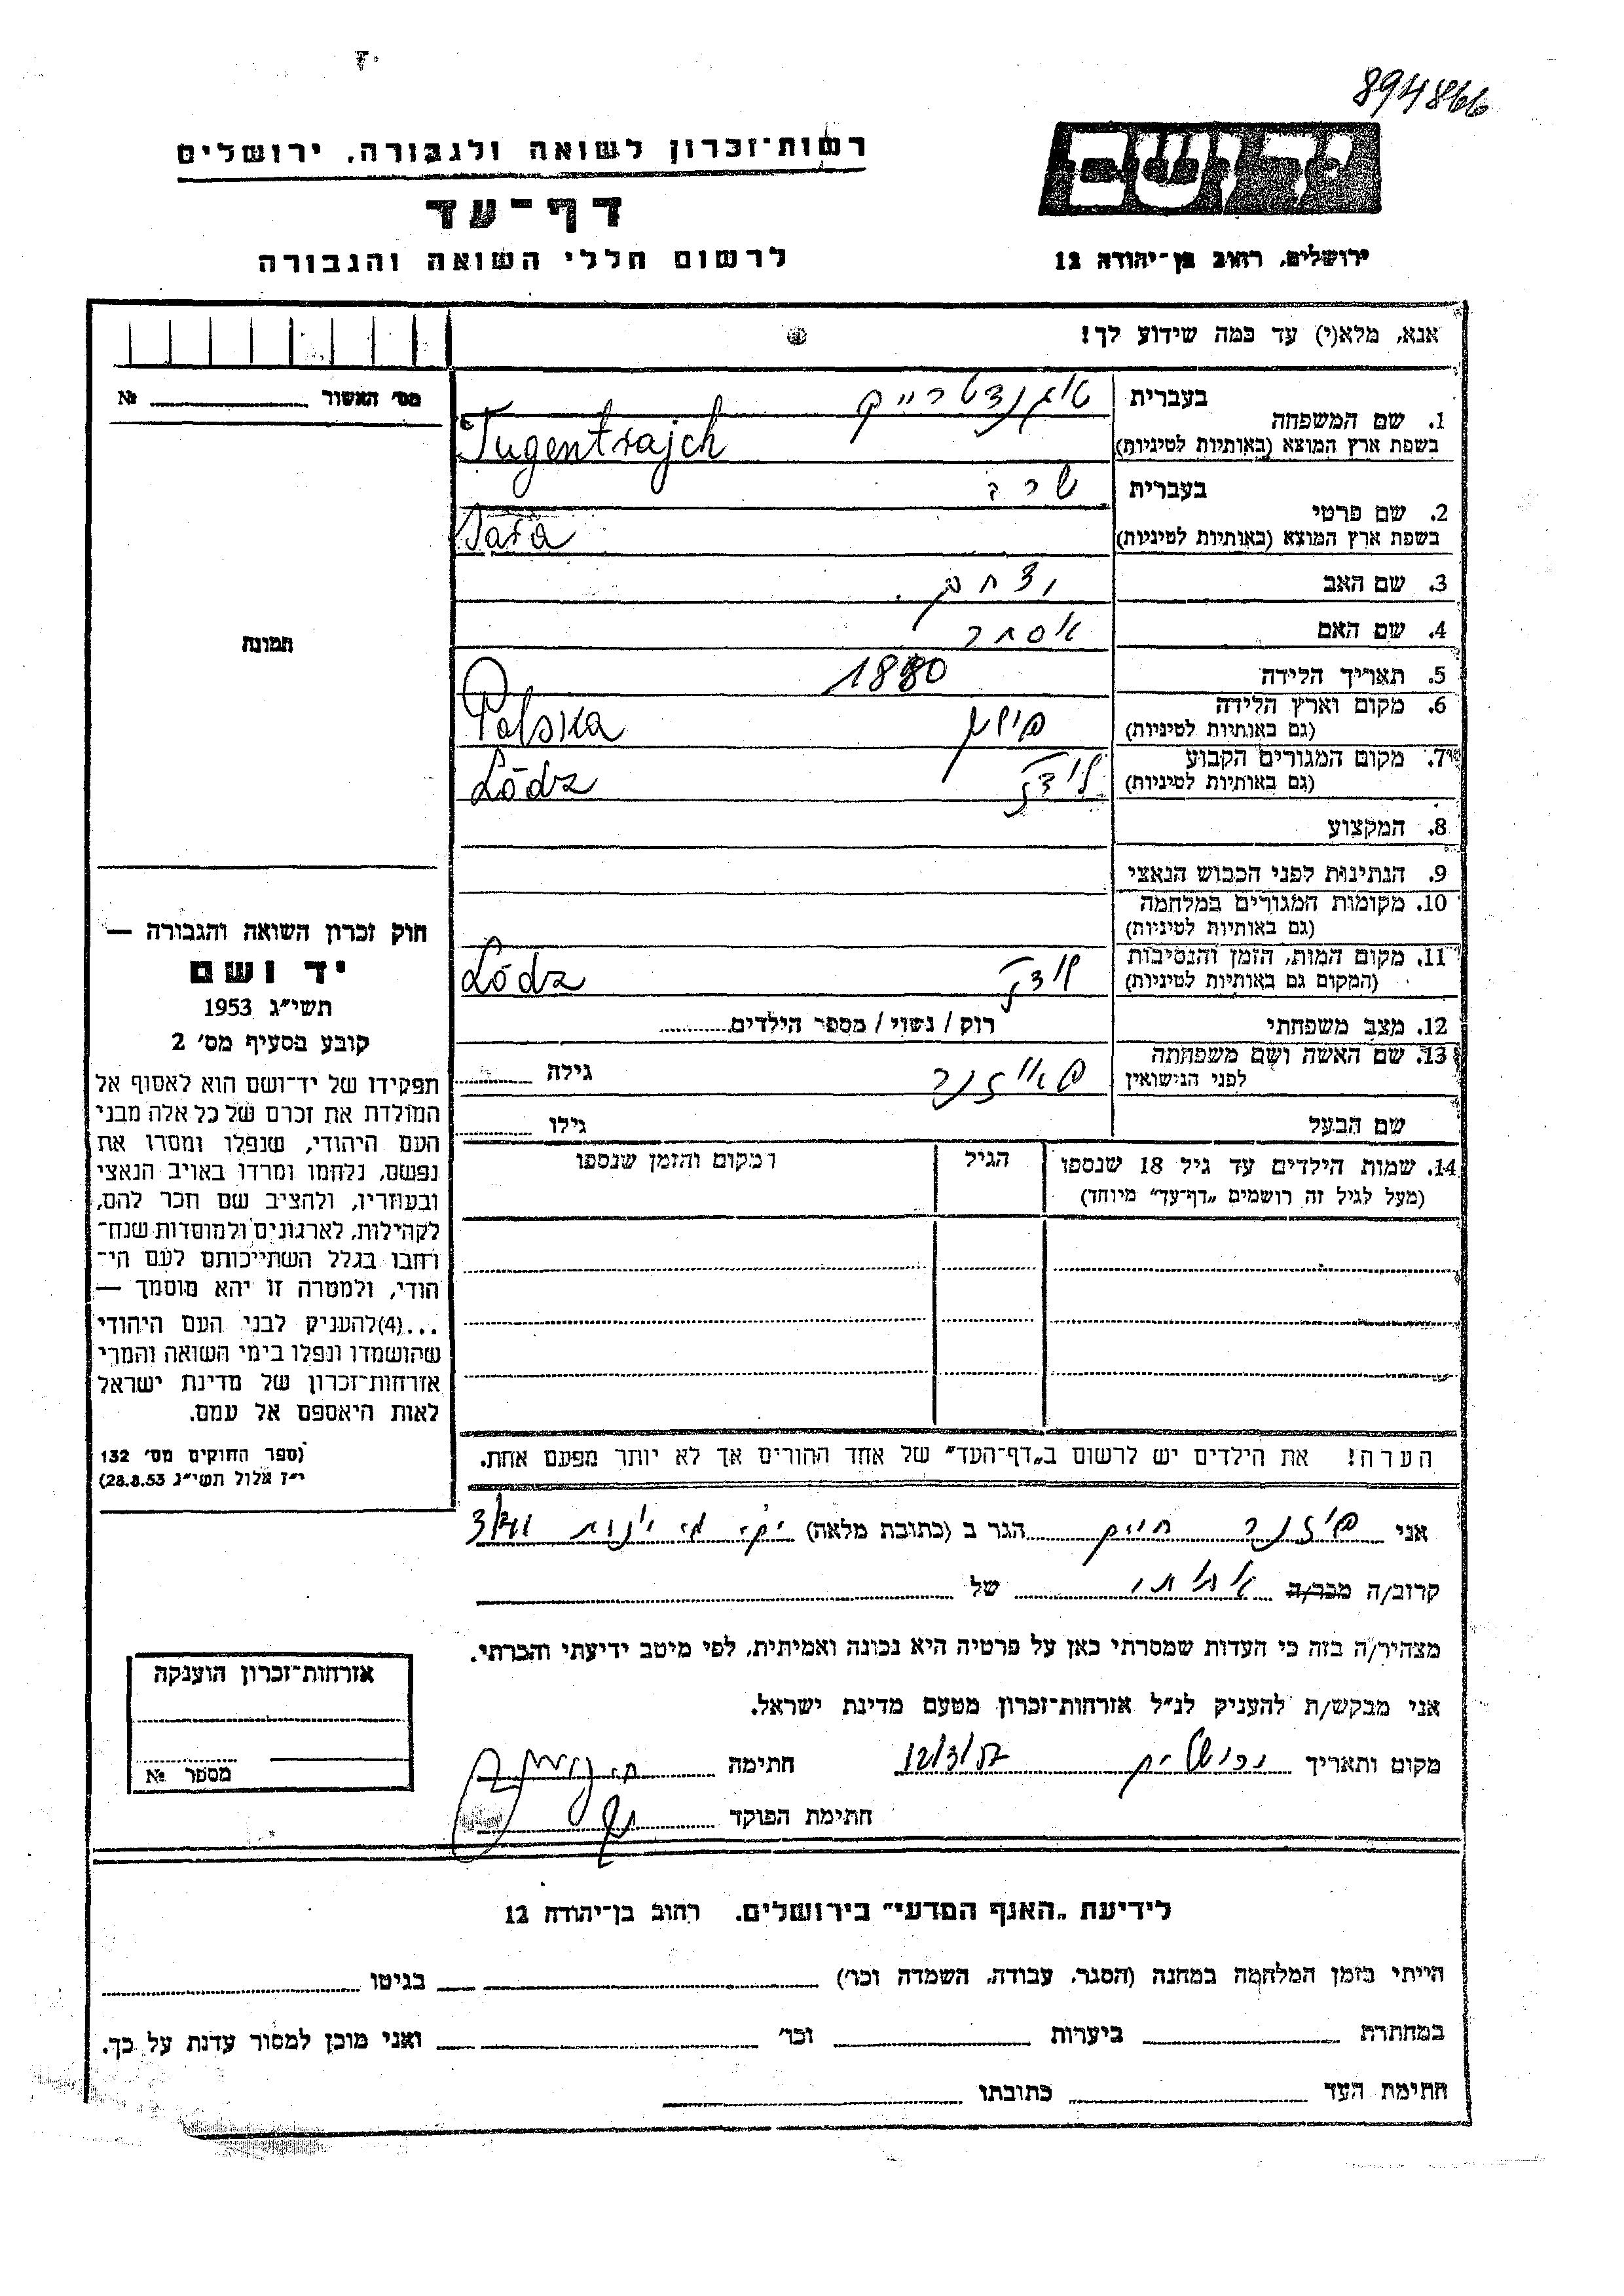 894866
יד ושם
ירושלים, רחוב בן־יהודה 12
רשות־זכרון לשואה ולגבורה, ירושלים
דף־עד
לרשום חללי השואה והגבורה
אנא, מלא(י) עד כמה שידוע לך!
מס' האשור № 
1. שם המשפחה
בעברית
בשפת ארץ המוצא (באותיות לטיניות)
Tugentrajch
2. שם פרטי
בעברית שרה
בשפת ארץ המוצא (באותיות לטיניות)
Sara
3. שם האב יצחק
4. שם האם אסתר
5. תאריך הלידה 1880
6. מקום וארץ הלידה
(גם באותיות לטיניות) פולין Polska
7. מקום המגורים הקבוע
(גם באותיות לטיניות) לודז' Łódz
8. המקצוע
9. הנתינות לפני הכבוש הנאצי
10. מקומות המגורים במלחמה
(גם באותיות לטיניות)
11. מקום המות, הזמן והנסיבות
(המקום גם באותיות לטיניות) לודז' Łódz
12. מצב משפחתי רוק / נשוי / מספר הילדים
13. שם האשה ושם משפחתה
לפני הנישואין גילה
שם הבעל גילו
14. שמות הילדים עד גיל 18 שנספו
(מעל לגיל זה רושמים „דף־עד" מיוחד)
הגיל
המקום והזמן שנספו
הערה! את הילדים יש לרשום ב„דף־העד" של אחד ההורים אך לא יותר מפעם אחת.
תמונה
חוק זכרון השואה והגבורה —
יד ושם
תשי"ג 1953
קובע בסעיף מס' 2
תפקידו של יד־ושם הוא לאסוף אל
המולדת את זכרם של כל אלה מבני
העם היהודי, שנפלו ומסרו את
נפשם, נלחמו ומרדו באויב הנאצי
ובעוזריו, ולהציב שם וזכר להם,
לקהילות, לארגונים ולמוסדות שנח־
רבו בגלל השתייכותם לעם הי־
הודי, ולמטרה זו יהא מוסמך —
...(4) להעניק לבני העם היהודי
שהושמדו ונפלו בימי השואה והמרי
אזרחות־זכרון של מדינת ישראל
לאות היאספם אל עמם.
(ספר החוקים מס' 132
י"ז אלול תשי"ג 28.8.53)
אני חיים הגר ב (כתובת מלאה)
קרוב/ה מכר/ה של
מצהיר/ה בזה כי העדות שמסרתי כאן על פרטיה היא נכונה ואמיתית, לפי מיטב ידיעתי והכרתי.
אני מבקש/ת להעניק לנ"ל אזרחות־זכרון מטעם מדינת ישראל.
מקום ותאריך ירושלים 12/3/57 חתימה
חתימת הפוקד
אזרחות־זכרון הוענקה
מספר №
לידיעת „האגף המדעי" בירושלים, רחוב בן־יהודה 12
הייתי בזמן המלחמה במחנה (הסגר, עבודה, השמדה וכו') בגיטו
במחתרת ביערות וכו' ואני מוכן למסור עדות על כך.
חתימת העד כתובתו